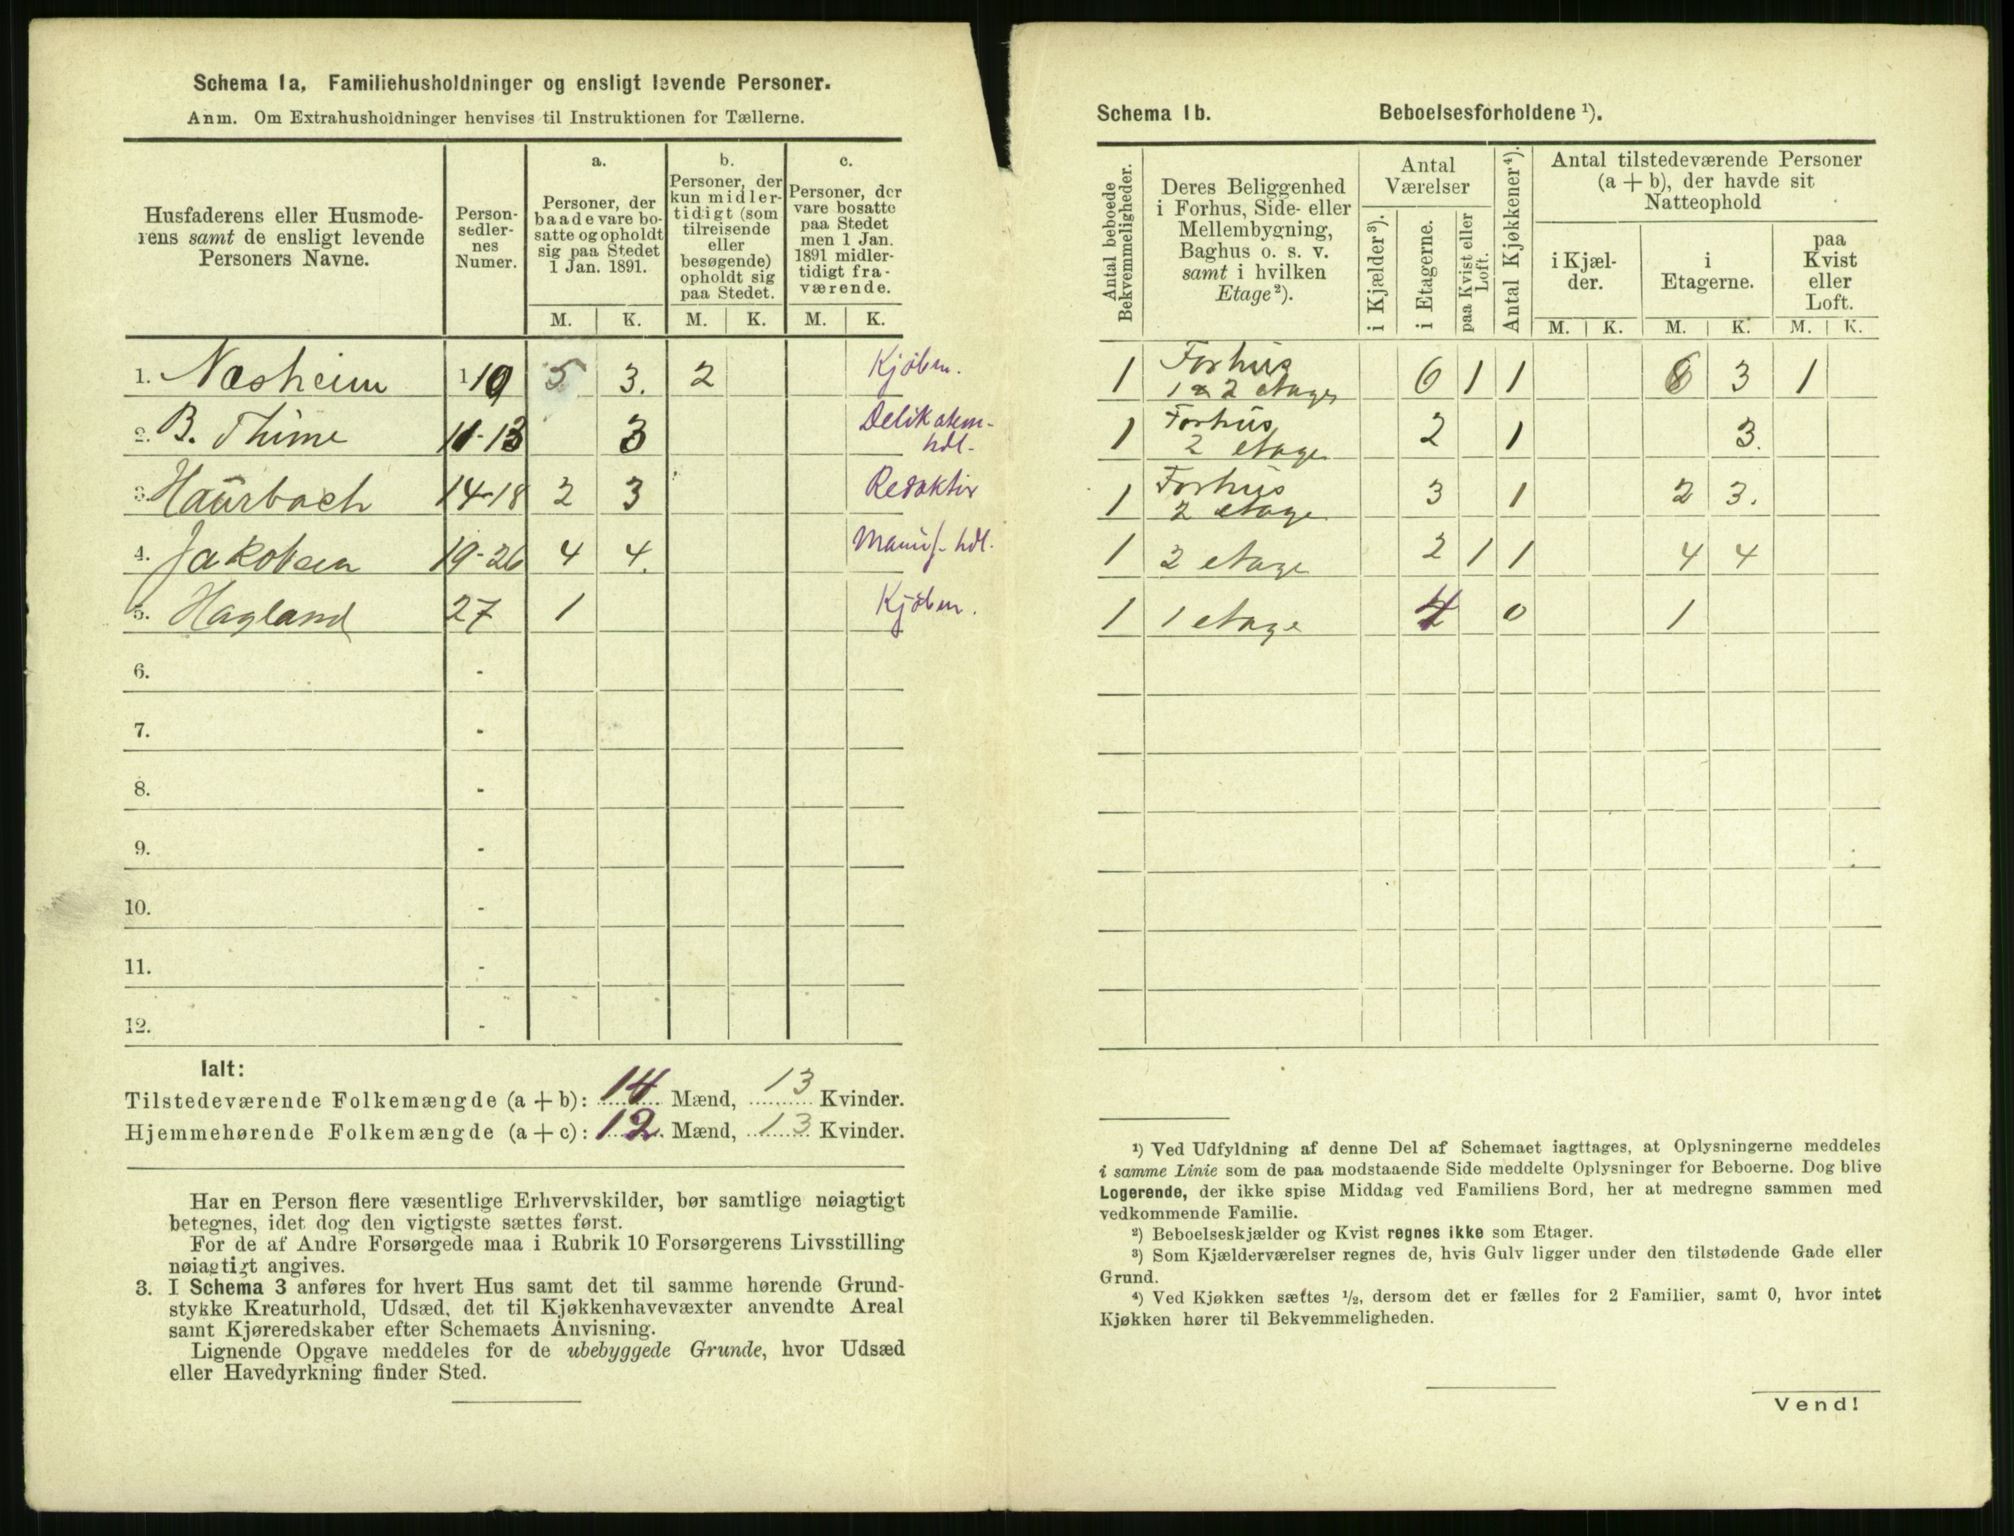 Schema 1a. Familiehusholdninger og ensligt levende Personer.
Anm. Om Extrahusholdninger henvises til Instruktionen for Tællerne.
Husfaderens eller Husmoderens samt de ensligt levende Personers Navne.
Personsedlernes Numer.
a.
Personer, der baade vare bosatte og opholdt sig paa Stedet 1 Jan. 1891.
b.
Personer, der kun midlertidigt (som tilreisende eller besøgende) opholdt sig paa Stedet.
c.
Personer, der vare bosatte paa Stedet men 1 Jan. 1891 midlertidigt fraværende.
M. K. M. K. M. K.
1. Næsheim 1 10 5 3. 2 Kjøbm.
2. B. Thime 11-13 3 Delikatessehdl.
3. Haürbach 14-18 2 3 Redaktør
4. Jakobsen 19-26 4 4. Manuf. hdl.
5. Hagland 27 1 Kjøbm.
6. -
7. -
8. -
9. -
10. -
11. -
12. -
Ialt:
Tilstedeværende Folkemængde (a + b): 14 Mænd, 13 Kvinder.
Hjemmehørende Folkemængde (a + c): 12 Mænd, 13 Kvinder.
Har en Person flere væsentlige Erhvervskilder, bør samtlige nøiagtigt
betegnes, idet dog den vigtigste sættes først.
For de af Andre Forsørgede maa i Rubrik 10 Forsørgerens Livsstilling
nøiagtigt angives.
3. I Schema 3 anføres for hvert Hus samt det til samme hørende Grund-
stykke Kreaturhold, Udsæd, det til Kjøkkenhavevæxter anvendte Areal
samt Kjøreredskaber efter Schemaets Anvisning.
Lignende Opgave meddeles for de ubebyggede Grunde, hvor Udsæd
eller Havedyrkning finder Sted.
Schema 1b. Beboelsesforholdene ¹).
Antal beboede Bekvemmeligheder.
Deres Beliggenhed i Forhus, Side- eller Mellembygning, Baghus o. s. v. samt i hvilken Etage ²).
Antal Værelser
i Kjælder ³).
i Etagerne.
paa Kvist eller Loft.
Antal Kjøkkener ⁴).
Antal tilstedeværende Personer (a + b), der havde sit Natteophold
i Kjælder.
i Etagerne.
paa Kvist eller Loft.
M. K. M. K. M. K.
1 Forhüs 1 & 2 etage 6 1 1 6 3 1
1 Forhüs 2 etage 2 1 3.
1 Forhüs 2 etage 3 1 2 3.
1 2 etage 2 1 1 4 4
1 1 etage 4 0 1
¹) Ved Udfyldning af denne Del af Schemaet iagttages, at Oplysningerne meddeles
i samme Linie som de paa modstaaende Side meddelte Oplysninger for Beboerne. Dog blive
Logerende, der ikke spise Middag ved Familiens Bord, her at medregne sammen med
vedkommende Familie.
²) Beboelseskjælder og Kvist regnes ikke som Etager.
³) Som Kjælderværelser regnes de, hvis Gulv ligger under den tilstødende Gade eller
Grund.
⁴) Ved Kjøkken sættes 1/2, dersom det er fælles for 2 Familier, samt 0, hvor intet
Kjøkken hører til Bekvemmeligheden.
Vend!